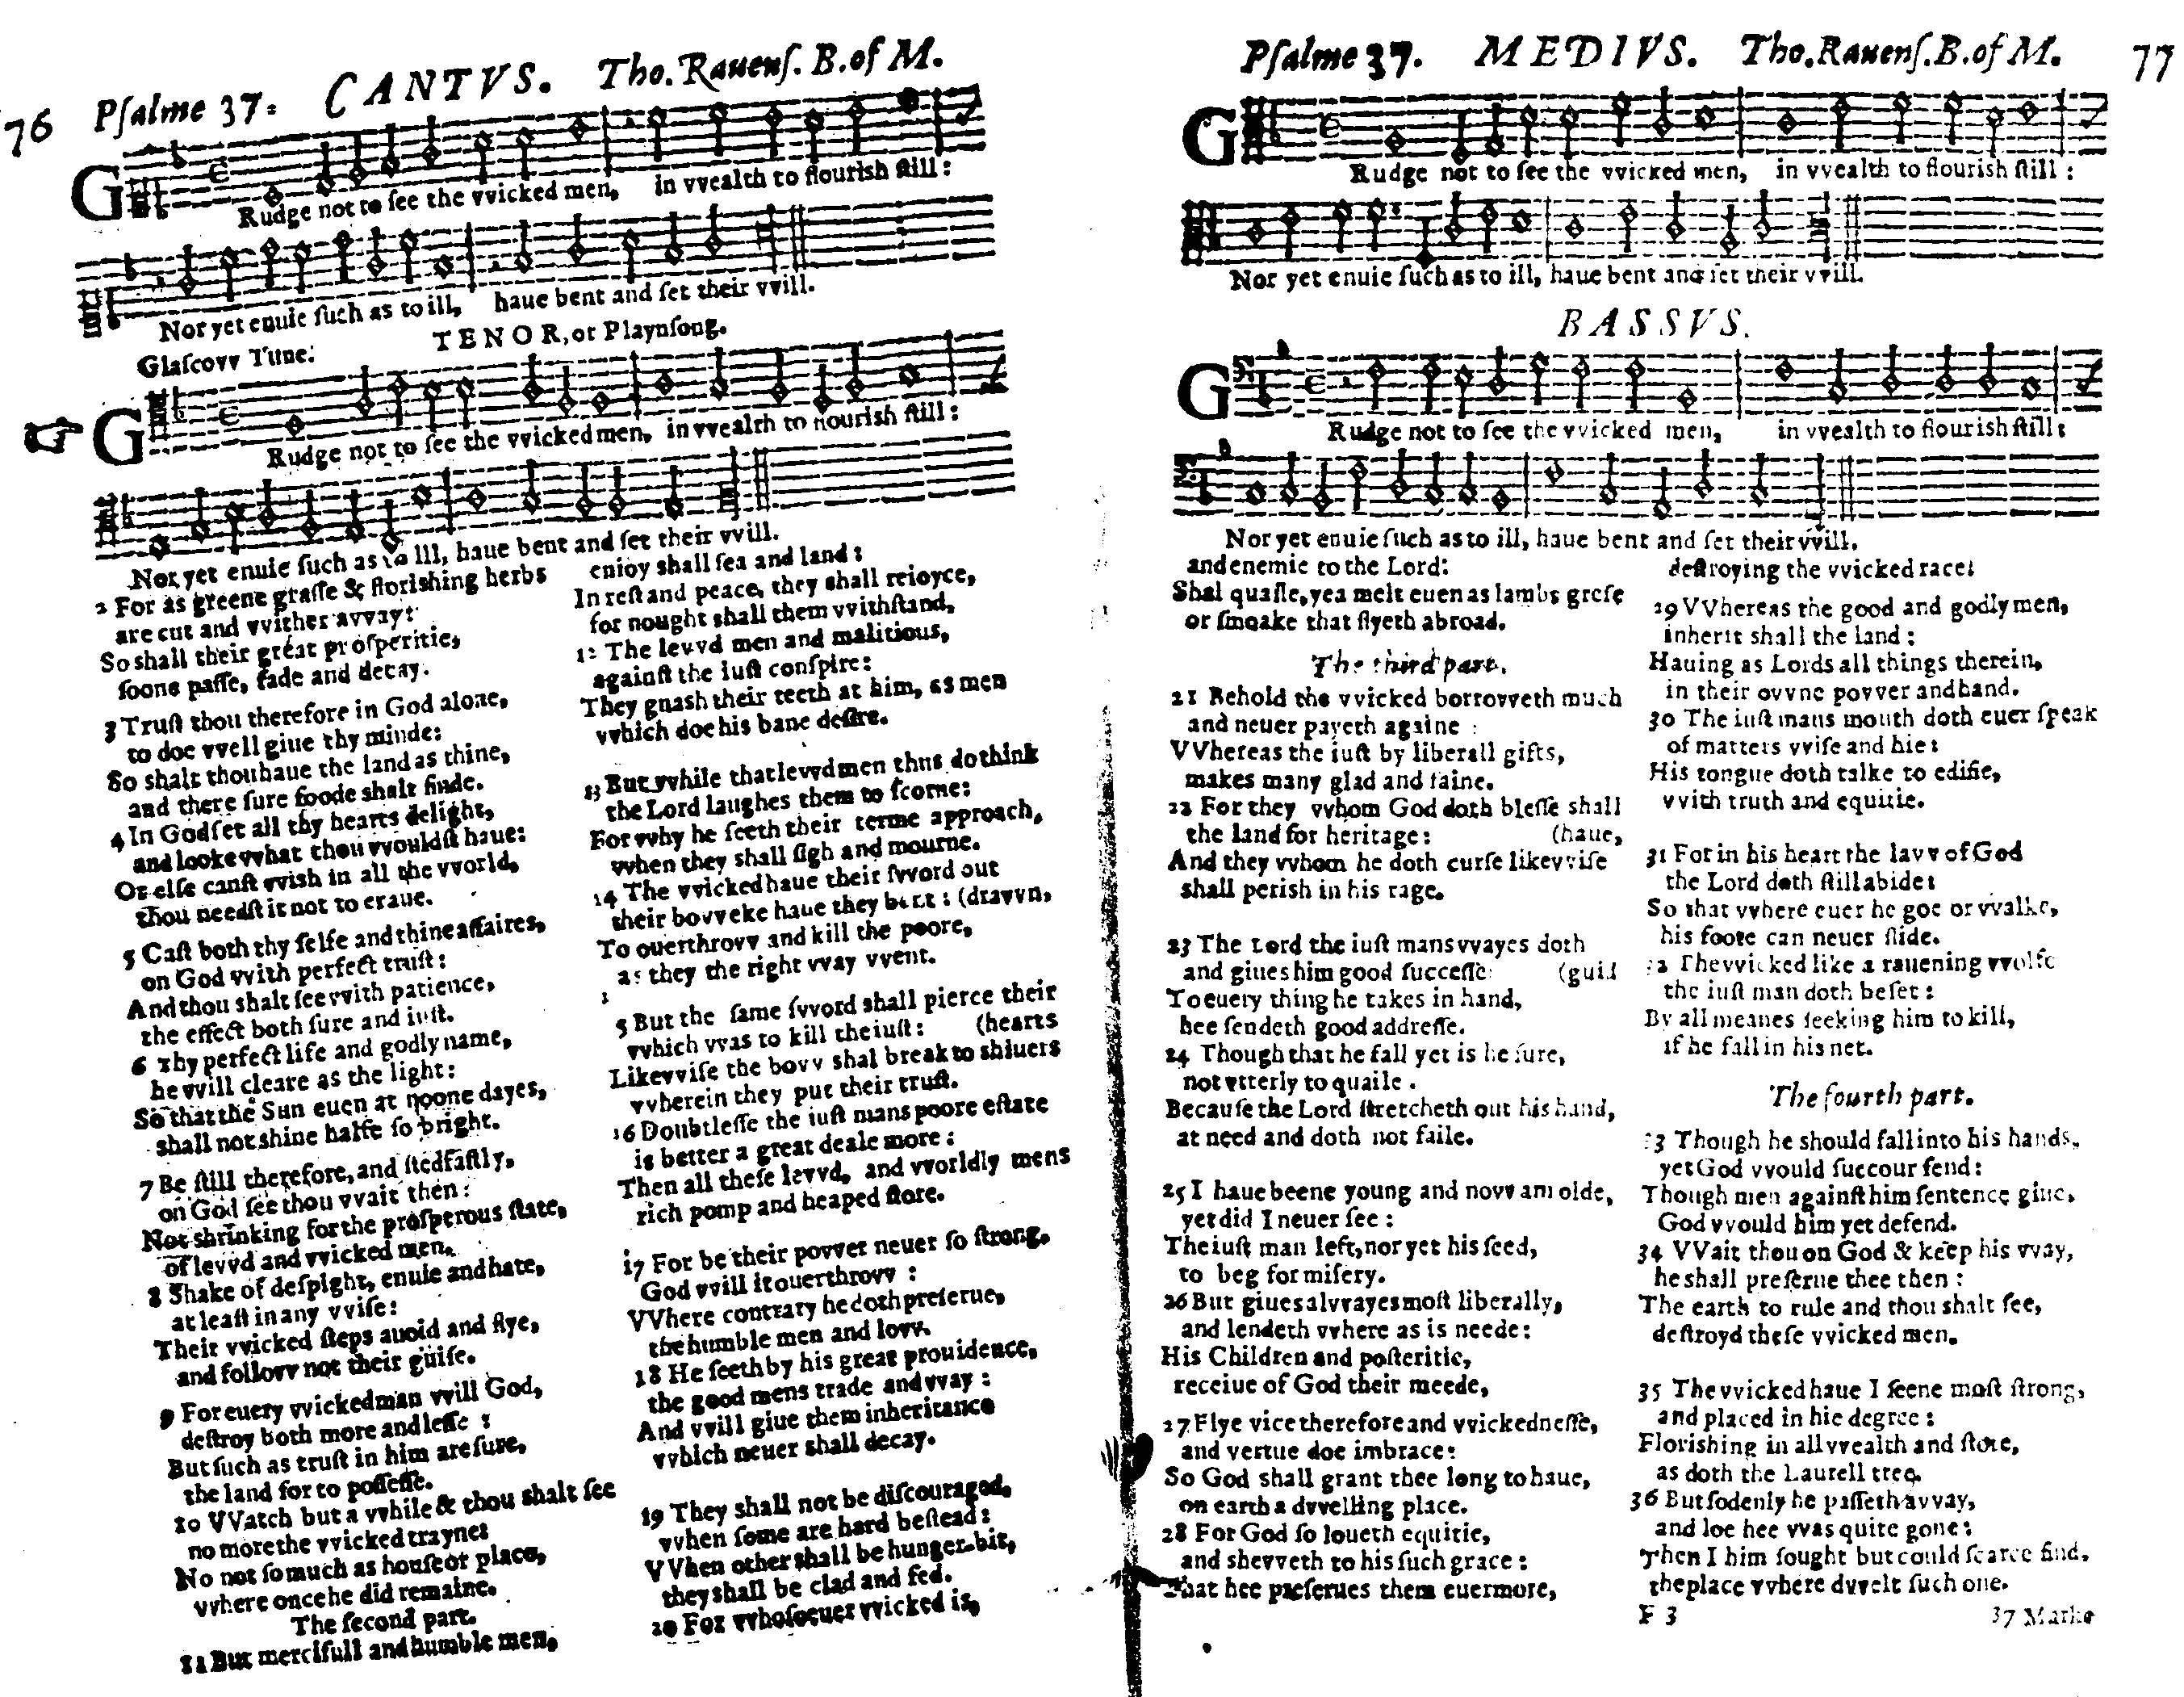 76 Pſalme 37: CANTVS. Tho. Rauenſ. B. of M.
GRudge not to ſee the vvicked men, in vvealth to flouriſh ſtill:
Nor yet enuie ſuch as to ill, haue bent and ſet their vvill.
TENOR, or Playnſong.
Glaſcovv Tune:
GRudge not to ſee the vvicked men, in vvealth to flouriſh ſtill:
Nor yet enuie ſuch as to Ill, haue bent and ſet their vvill.
2 For as greene graſſe & floriſhing herbs
are cut and vvither avvay:
So shall their great proſperitie,
ſoone paſſe, fade and decay.
3 Truſt thou therefore in God alone,
to doe vvell giue thy minde:
So shalt thou haue the land as thine,
and there ſure foode shalt finde.
4 In God ſet all thy hearts delight,
and looke vvhat thou vvouldſt haue:
Or elſe canſt vvish in all the vvorld,
thou needſt it not to craue.
5 Caſt both thy ſelfe and thine affaires,
on God vvith perfect truſt:
And thou shalt ſee vvith patience,
the effect both ſure and iuſt.
6 Thy perfect life and godly name,
he vvill cleare as the light:
So that the Sun euen at noone dayes,
shall not shine halfe ſo bright.
7 Be ſtill therefore, and ſtedfaſtly,
on God ſee thou vvait then:
Not shrinking for the proſperous ſtate,
of levvd and vvicked men.
8 Shake of deſpight, enuie and hate,
at leaſt in any vviſe:
Their vvicked ſteps auoid and flye,
and follovv not their guiſe.
9 For euery vvicked man vvill God,
deſtroy both more and leſſe:
But ſuch as truſt in him are ſure,
the land for to poſſeſſe.
10 VVatch but a vvhile & thou shalt ſee
no more the vvicked trayne:
No not ſo much as houſe or place,
vvhere once he did remaine.
The ſecond part.
11 But mercifull and humble men,
enioy shall ſea and land:
In reſt and peace, they shall reioyce,
for nought shall them vvithſtand.
12 The levvd men and malitious,
againſt the iuſt conſpire:
They gnash their teeth at him, as men
vvhich doe his bane deſire.
13 But vvhile that levvd men thus do think
the Lord laughes them to ſcorne:
For vvhy he ſeeth their terme approach,
vvhen they shall ſigh and mourne.
14 The vvicked haue their ſvvord out
their bovv eke haue they bent: (dravvn,
To ouerthrovv and kill the poore,
as they the right vvay vvent.
1
5 But the ſame ſvvord shall pierce their
vvhich vvas to kill the iuſt: (hearts
Likevviſe the bovv shal break to shiuers
vvherein they put their truſt.
16 Doubtleſſe the iuſt mans poore eſtate
is better a great deale more:
Then all theſe levvd, and vvorldly mens
rich pomp and heaped ſtore.
17 For be their povver neuer ſo ſtrong,
God vvill it ouerthrovv:
VVhere contrary he doth preſerue,
the humble men and lovv.
18 He ſeeth by his great prouidence,
the good mens trade and vvay:
And vvill giue them inheritance
vvhich neuer shall decay.
19 They shall not be diſcouraged,
vvhen ſome are hard beſtead:
VVhen other shall be hunger-bit,
they shall be clad and fed.
20 For vvhoſoeuer vvicked is,
Pſalme 37. MEDIVS. Tho. Rauenſ. B. of M. 77
GRudge not to ſee the vvicked men, in vvealth to flouriſh ſtill:
Nor yet enuie ſuch as to ill, haue bent and ſet their vvill.
BASSVS.
GRudge not to ſee the vvicked men, in vvealth to flouriſh ſtill:
Nor yet enuie ſuch as to ill, haue bent and ſet their vvill.
and enemie to the Lord:
Shal quaile, yea melt euen as lambs greſe
or ſmoake that flyeth abroad.
The third part.
21 Behold the vvicked borrovveth much
and neuer payeth againe:
VVhereas the iuſt by liberall gifts,
makes many glad and faine.
22 For they vvhom God doth bleſſe shall
the land for heritage: (haue,
And they vvhom he doth curſe likevviſe
shall perish in his rage.
23 The Lord the iuſt mans vvayes doth
and giues him good ſucceſſe: (guid
To euery thing he takes in hand,
hee ſendeth good addreſſe.
24 Though that he fall yet is he ſure,
not vtterly to quaile.
Becauſe the Lord ſtretcheth out his hand,
at need and doth not faile.
25 I haue beene young and novv am olde,
yet did I neuer ſee:
The iuſt man left, nor yet his ſeed,
to beg for miſery.
26 But giues alvvayes moſt liberally,
and lendeth vvhere as is neede:
His Children and poſteritie,
receiue of God their meede,
27 Flye vice therefore and vvickedneſſe,
and vertue doe imbrace:
So God shall grant thee long to haue,
on earth a dvvelling place.
28 For God ſo loueth equitie,
and shevveth to his ſuch grace:
That hee preſerues them euermore,
deſtroying the vvicked race:
29 VVhereas the good and godly men,
inherit shall the land:
Hauing as Lords all things therein,
in their ovvne povver and hand.
30 The iuſt mans mouth doth euer ſpeak
of matters vviſe and hie:
His tongue doth talke to edifie,
vvith truth and equitie.
31 For in his heart the lavv of God
the Lord doth ſtill abide:
So that vvhere euer he goe or vvalke,
his foote can neuer ſlide.
32 The vvicked like a rauening vvolfe
the iuſt man doth beſet:
By all meanes ſeeking him to kill,
if he fall in his net.
The fourth part.
33 Though he should fall into his hands,
yet God vvould ſuccour ſend:
Though men againſt him ſentence giue,
God vvould him yet defend.
34 VVait thou on God & keep his vvay,
he shall preſerue thee then:
The earth to rule and thou shalt ſee,
deſtroyd theſe vvicked men.
35 The vvicked haue I ſeene moſt ſtrong,
and placed in hie degree:
Floriſhing in all vvealth and ſtore,
as doth the Laurell tree.
36 But ſodenly he paſſeth avvay,
and loe hee vvas quite gone:
Then I him ſought but could ſcarce find,
the place vvhere dvvelt ſuch one.
F 3 37 Marke